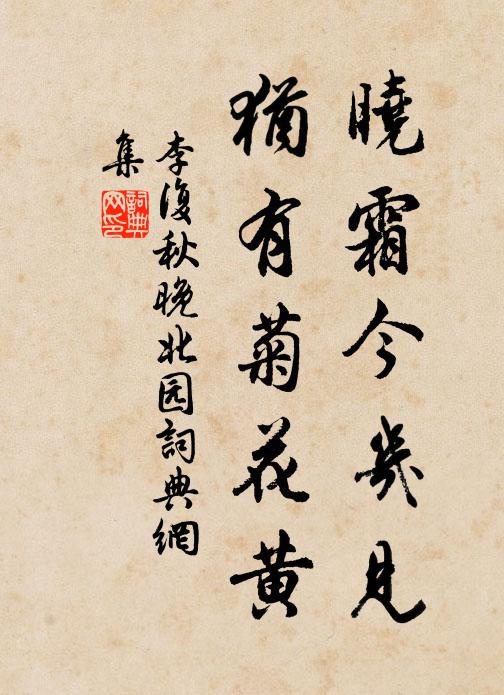 曉霜今幾見
猶有菊花黄
李復秋晚北园詞典網
集
詞典網印